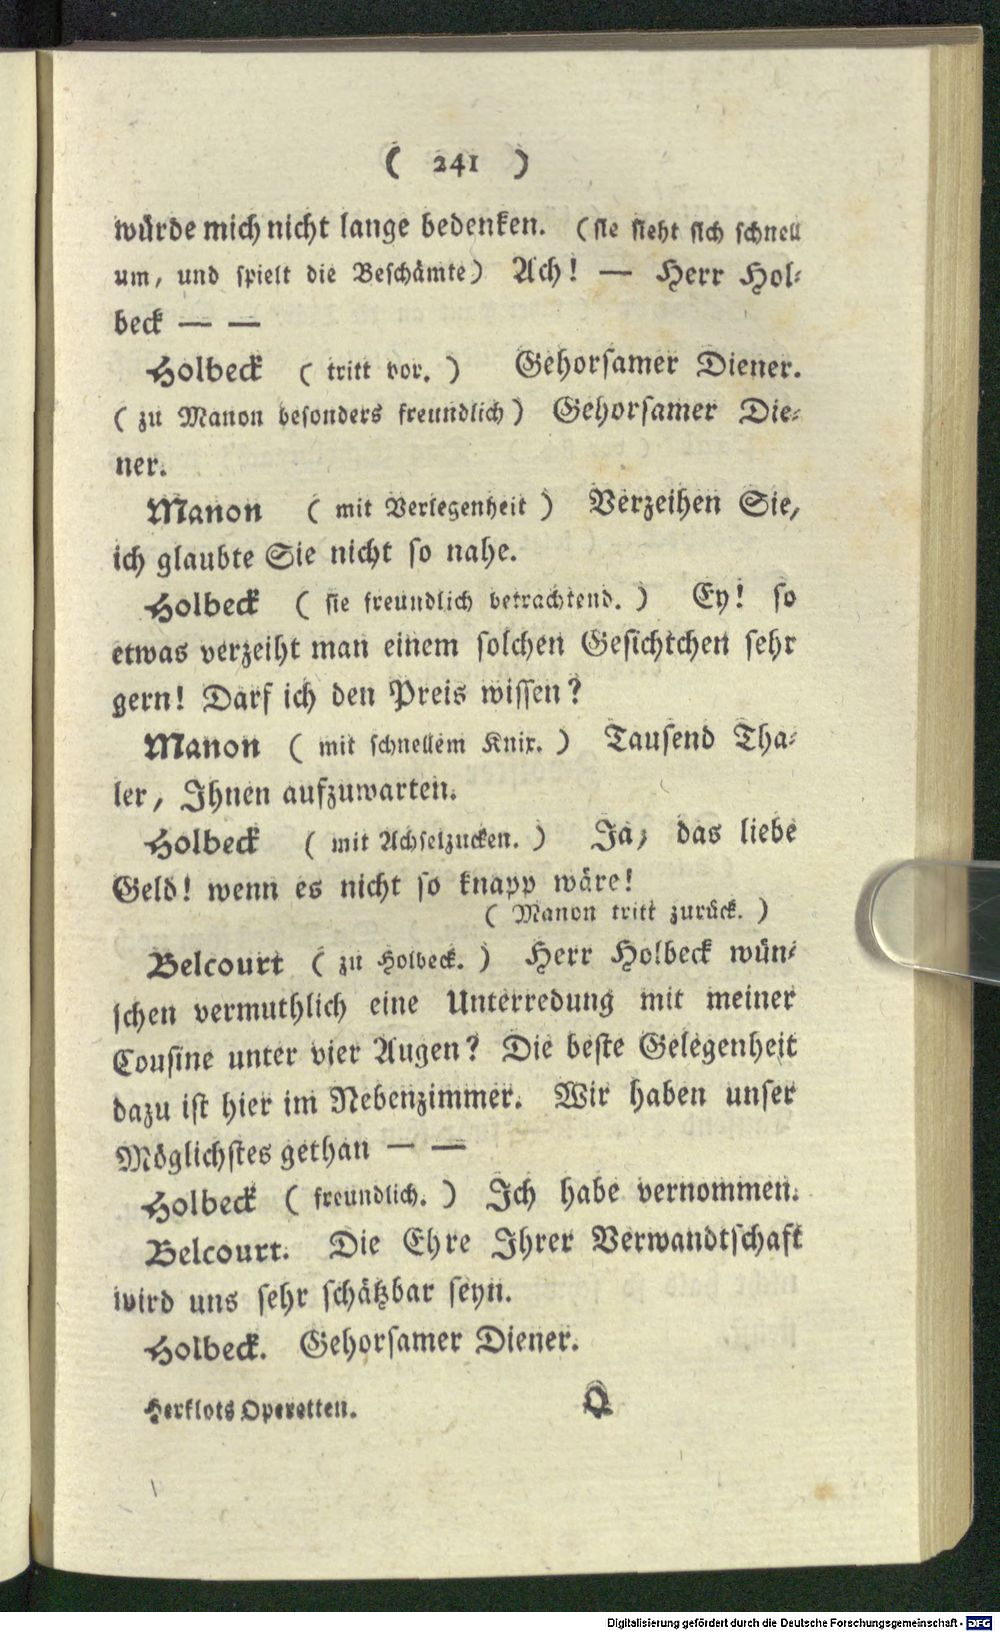 ( 241 )
würde mich nicht lange bedenken. (sie sieht sich schnell
um, und spielt die Beschämte) Ach! — Herr Hol-
beck — —
Holbeck ( tritt vor. ) Gehorsamer Diener.
( zu Manon besonders freundlich ) Gehorsamer Die-
ner.
Manon ( mit Verlegenheit ) Verzeihen Sie,
ich glaubte Sie nicht so nahe.
Holbeck ( sie freundlich betrachtend. ) Ey! so
etwas verzeiht man einem solchen Gesichtchen sehr
gern! Darf ich den Preis wissen?
Manon ( mit schnellem Knix. ) Tausend Tha-
ler, Ihnen aufzuwarten.
Holbeck ( mit Achselzucken. ) Ja, das liebe
Geld! wenn es nicht so knapp wäre!
( Manon tritt zurück. )
Belcourt ( zu Holbeck. ) Herr Holbeck wün-
schen vermuthlich eine Unterredung mit meiner
Cousine unter vier Augen? Die beste Gelegenheit
dazu ist hier im Nebenzimmer. Wir haben unser
Möglichstes gethan — —
Holbeck ( freundlich. ) Ich habe vernommen.
Belcourt. Die Ehre Ihrer Verwandtschaft
wird uns sehr schätzbar seyn.
Holbeck. Gehorsamer Diener.
Herklots Operetten. Q
Digitalisierung gefördert durch die Deutsche Forschungsgemeinschaft - DFG